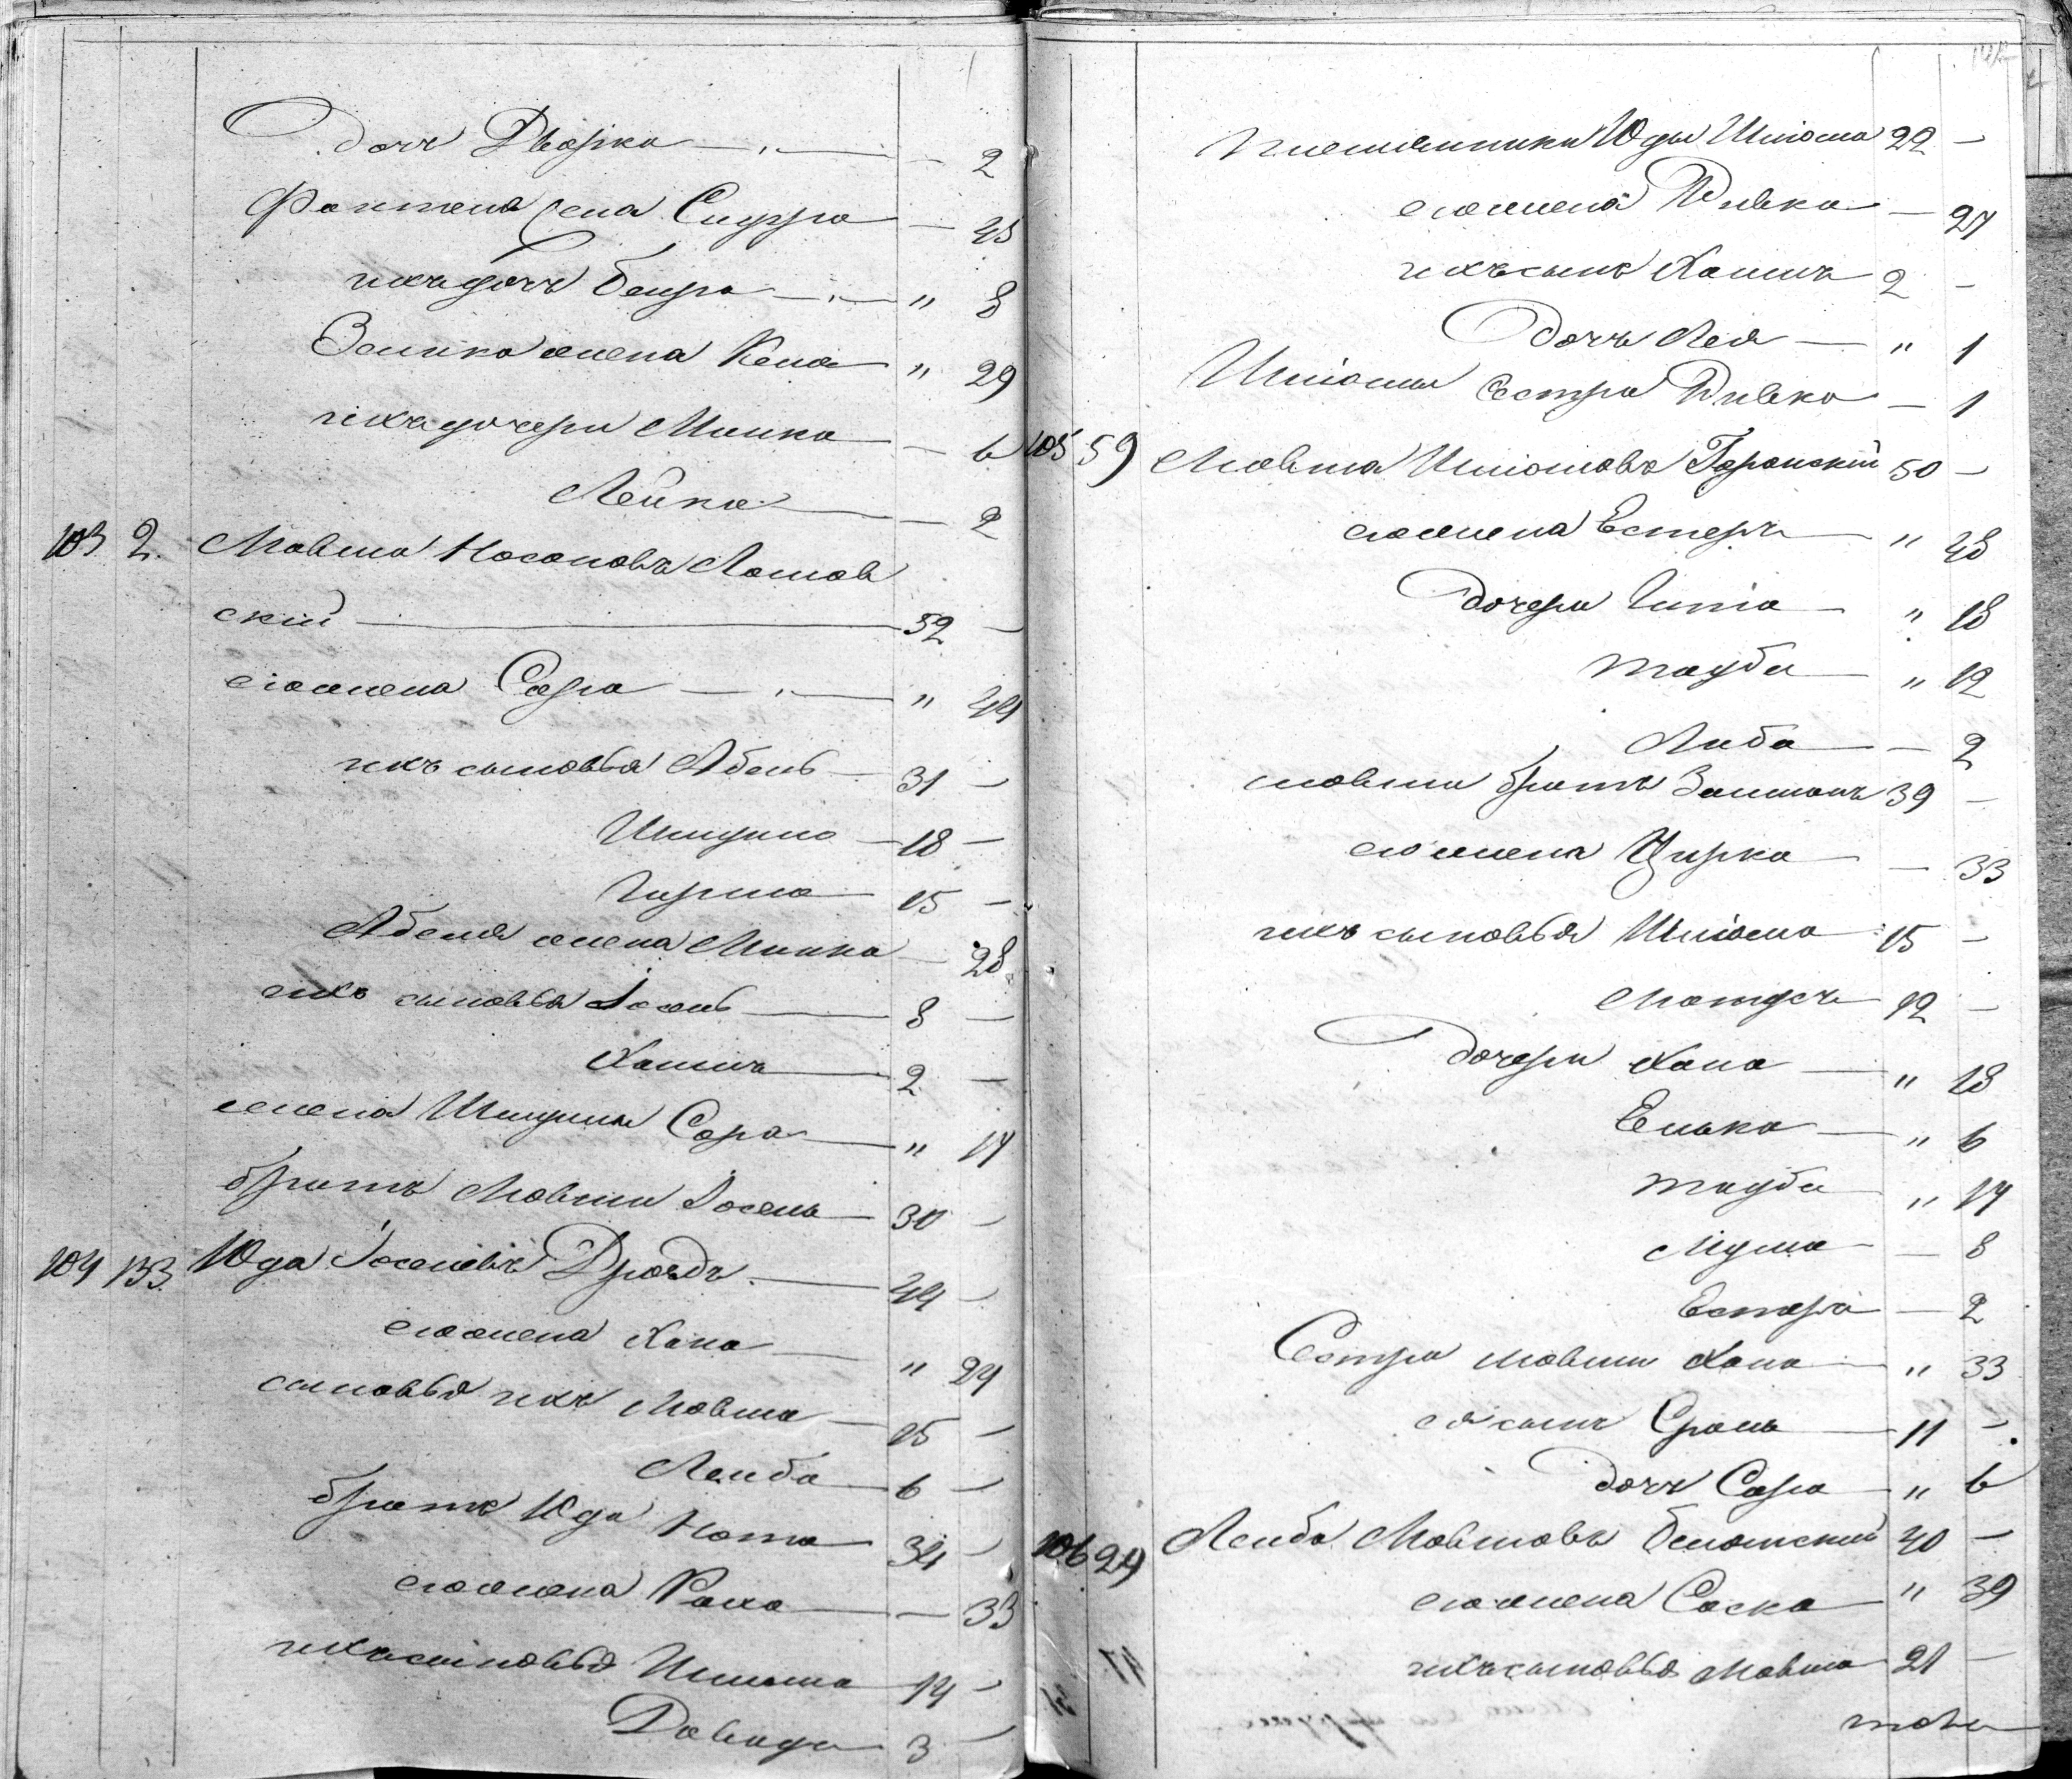 дочь Двойра — " — — 2
жена Сидура — 45
ихъ дочь Бейра — " — " 8
Зелика жена Кена " 29
ихъ дочери Минка — 6
Лейка — 2
103 2. Мовша Носоновъ Лошов
скій — 52 —
его жена Сора — " — " 44
ихъ сыновья Абель 31 —
18 —
Гирша 15 —
Абеля жена Минка — 28
ихъ сыновья Іосель — 8 —
Хаимъ 2 —
жена Сора " 17
братъ Мовши Іосель 30 —
104 133. Юда Іоселевъ Дроздъ — 44 —
его жена Хана — " 24
сыновья ихъ Мовша 15 —
Лейба 6 —
братъ Юды Нота 34 —
его жена Раха — 33
ихъ сыновья Шлиома 14 —
Давидъ 3 —
племянникъ Юды Шліома 22 —
его жена Ривка — 27
ихъ сынъ Хаимъ 2 —
дочь Лея — " 1
Шліомы сестра Ривка — 1
105 59 Мовша Шліомовъ Горонскій 50 —
его жена Естеръ " 48
дочери Гитла — " 18
Тауба — " 12
Либа — 2
Мовши братъ Залманъ 39 —
его жена Цирка — 33
ихъ сыновья Шліома 15 —
Мотусъ 12 —
дочери Хана — " 18
Елька — " 6
Тауба " 14
Мума — 8
Естера — 2
Сестра Мовши Хана " 33
ея сынъ Сроль 11 —
дочь Сора " 6
106 24 Лейба Мовшовъ 40 —
его жена Соска " 39
ихъ сыновья Мовша 21 —